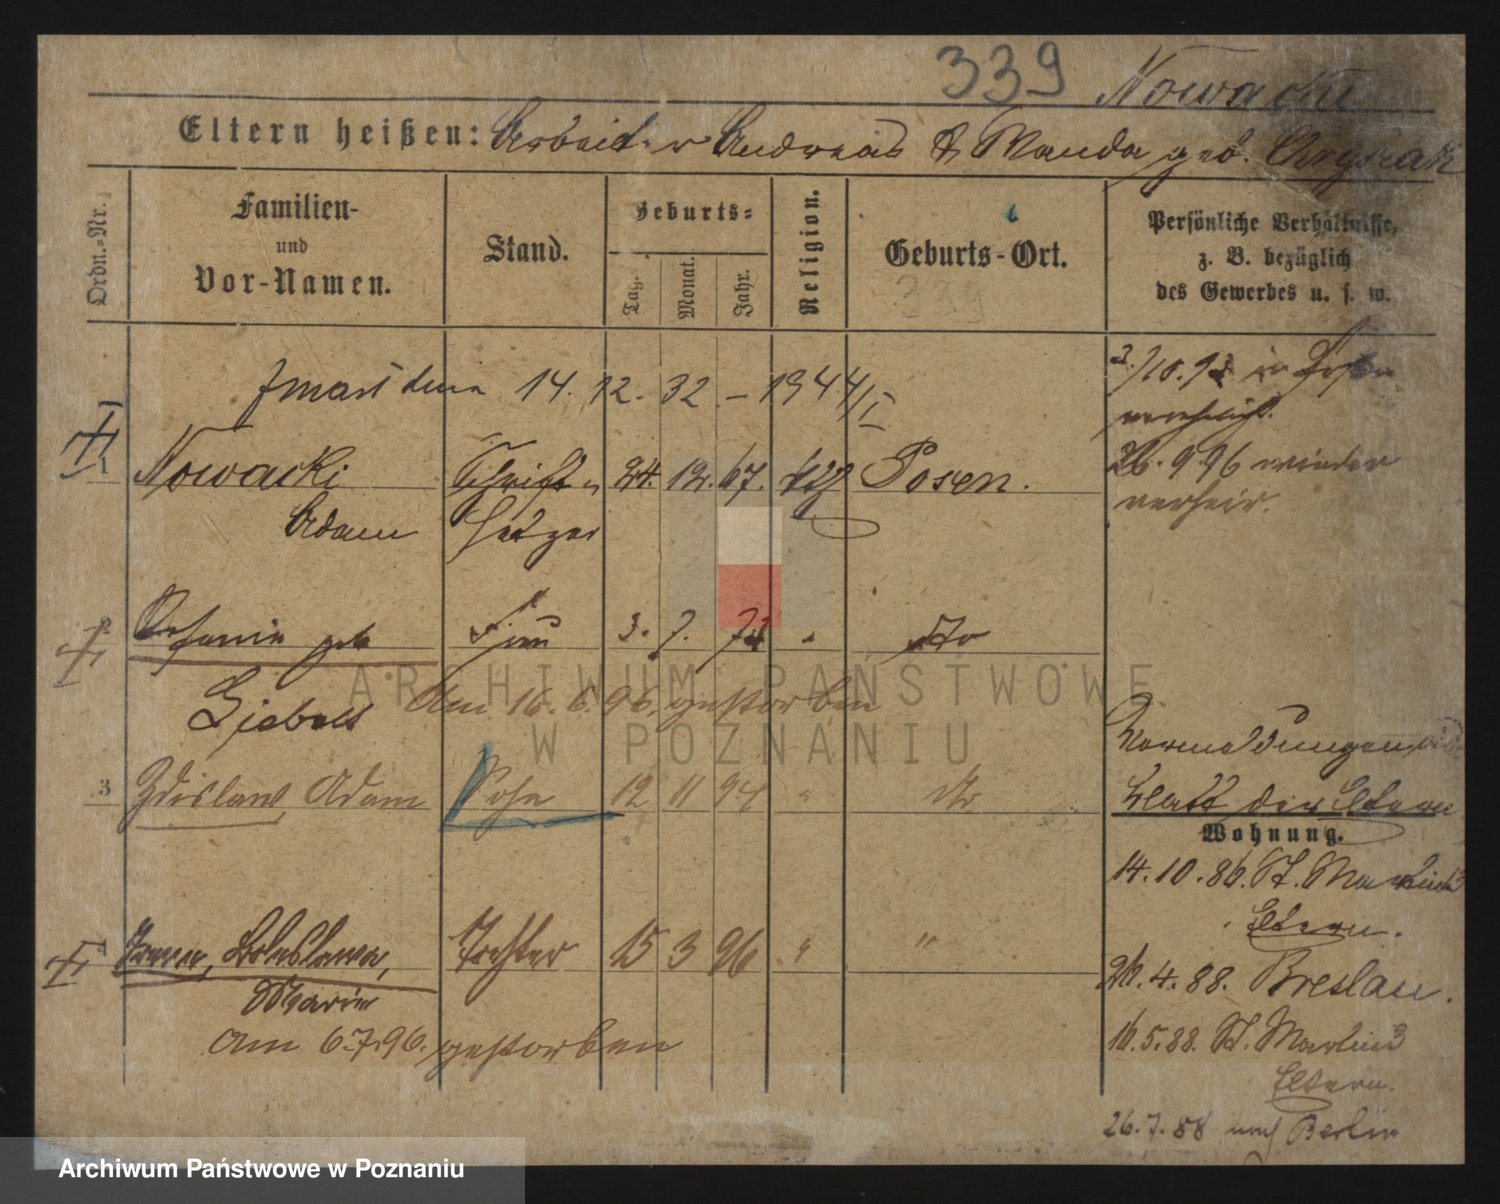 339 Nowacki
Eltern heißen: Arbeiter Andreas & Wanda geb.
Ordn.-Nr.
Familien-
und
Vor-Namen.
Stand.
Geburts-
Tag.
Monat.
Jahr.
Religion.
Geburts-Ort.
339
Persönliche Verhältnisse,
z. B. bezüglich
des Gewerbes u. s. w.
zmarł dnia 14. 12. 32. - 1944/I
1 Nowacki Schrift- 24. 12. 67. kth Posen.
Adam Setzer
2 Stefania geb Frau 3. 7. 73 " do
Am 16. 6. 96. gestorben
3 Zdislaw Adam Sohn 12 11 94 " do
Boleslawa, Tochter 15 3 96 " "
Marie
Am 6.7.96. gestorben
3./10.93 in Posen
verheir.
26.9.96 wieder
verheir.
Vormeldungen
Blatt der Eltern
Wohnung.
14.10.86. St. Martin
Eltern.
26.4.88. Breslau.
16.5.88. St. Martin
Eltern.
26.7.88 nach Berlin
ARCHIWUM PAŃSTWOWE
W POZNANIU
Archiwum Państwowe w Poznaniu